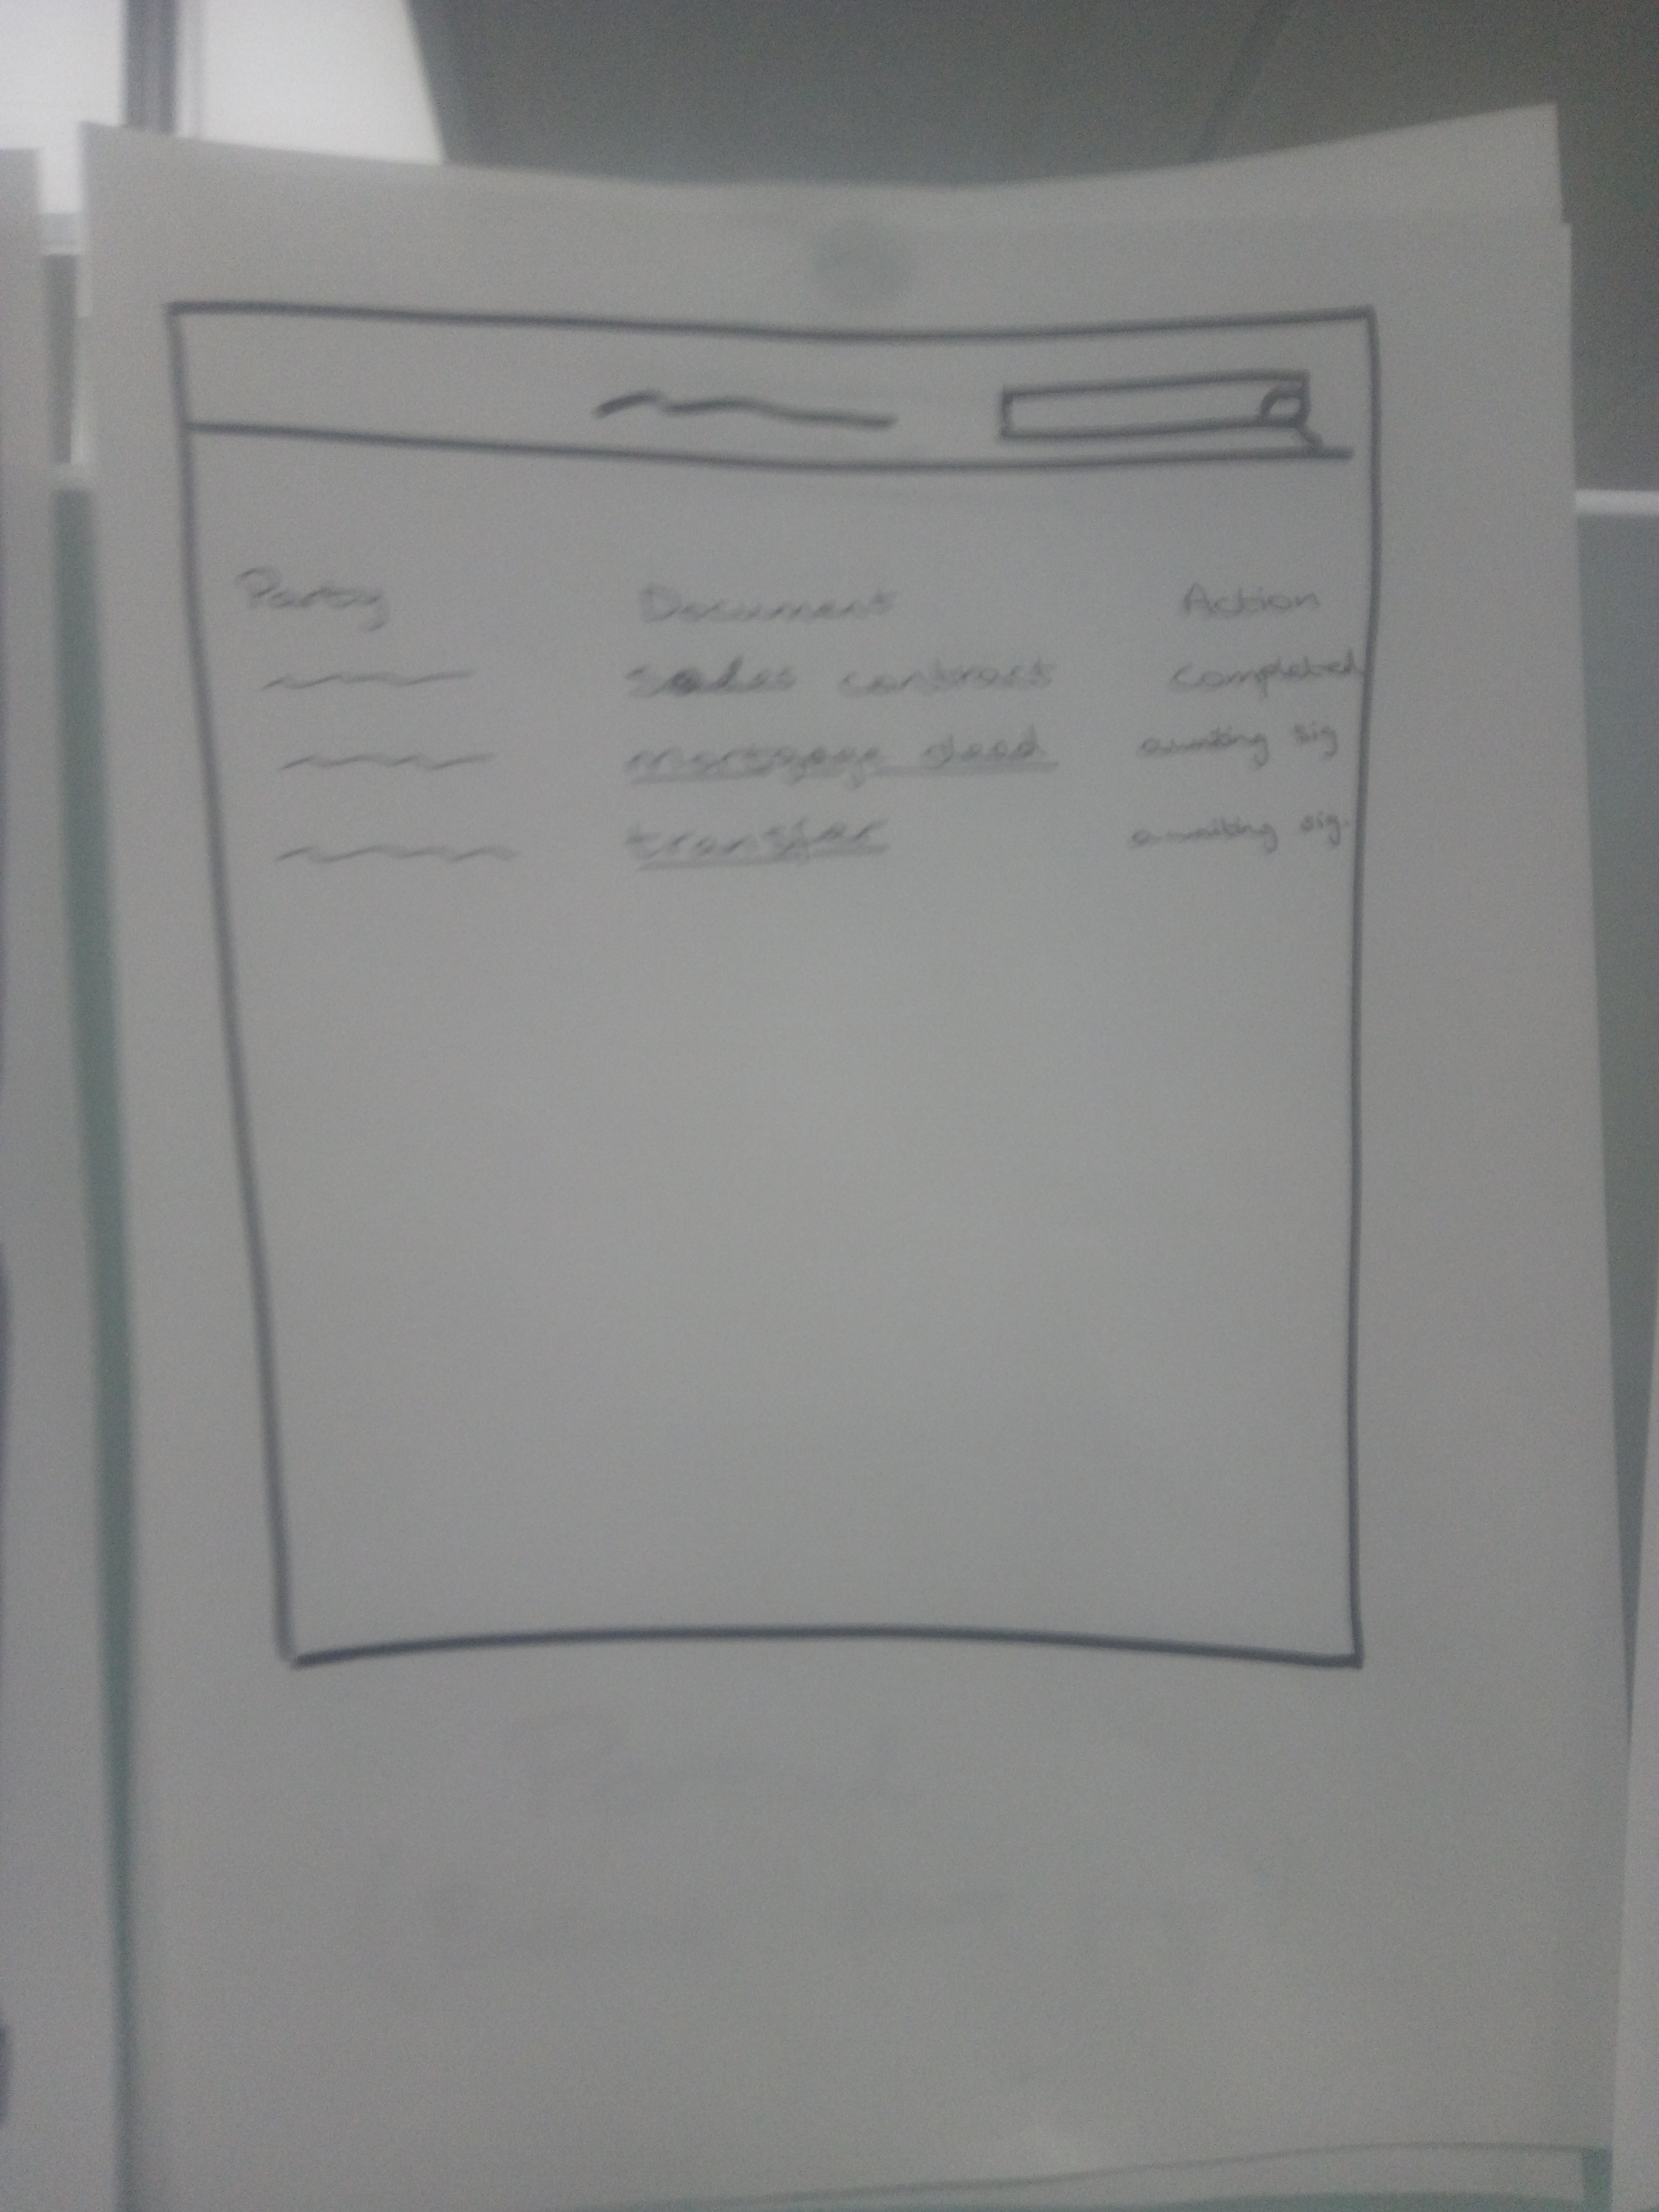 Party Document Action
sales contract completed
mortgage deed awaiting sig
transfer awaiting sig.